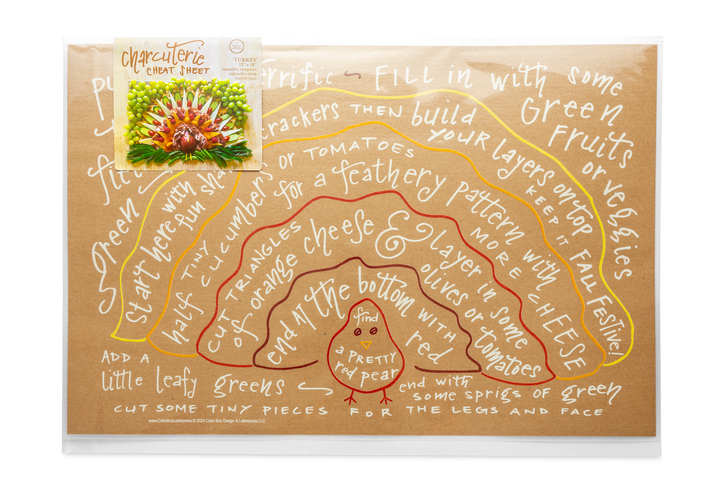 charcuterie
CHEAT SHEET
TURKEY
FILL in with some
Green
Fruits
or veggies
green
Start here with fun
crackers THEN build
YOUR layers on top
KEEP IT FALL FESTIVE!
half TINY CUCUMBERS or TOMATOES
for a feathery pattern with
MORE CHEESE
CUT TRIANGLES of orange cheese & layer in some
olives or tomatoes
end AT the bottom WITH red
find
a PRETTY
red pear
ADD A
little leafy greens
end with
some sprigs of green
CUT SOME TINY PIECES FOR THE LEGS AND FACE